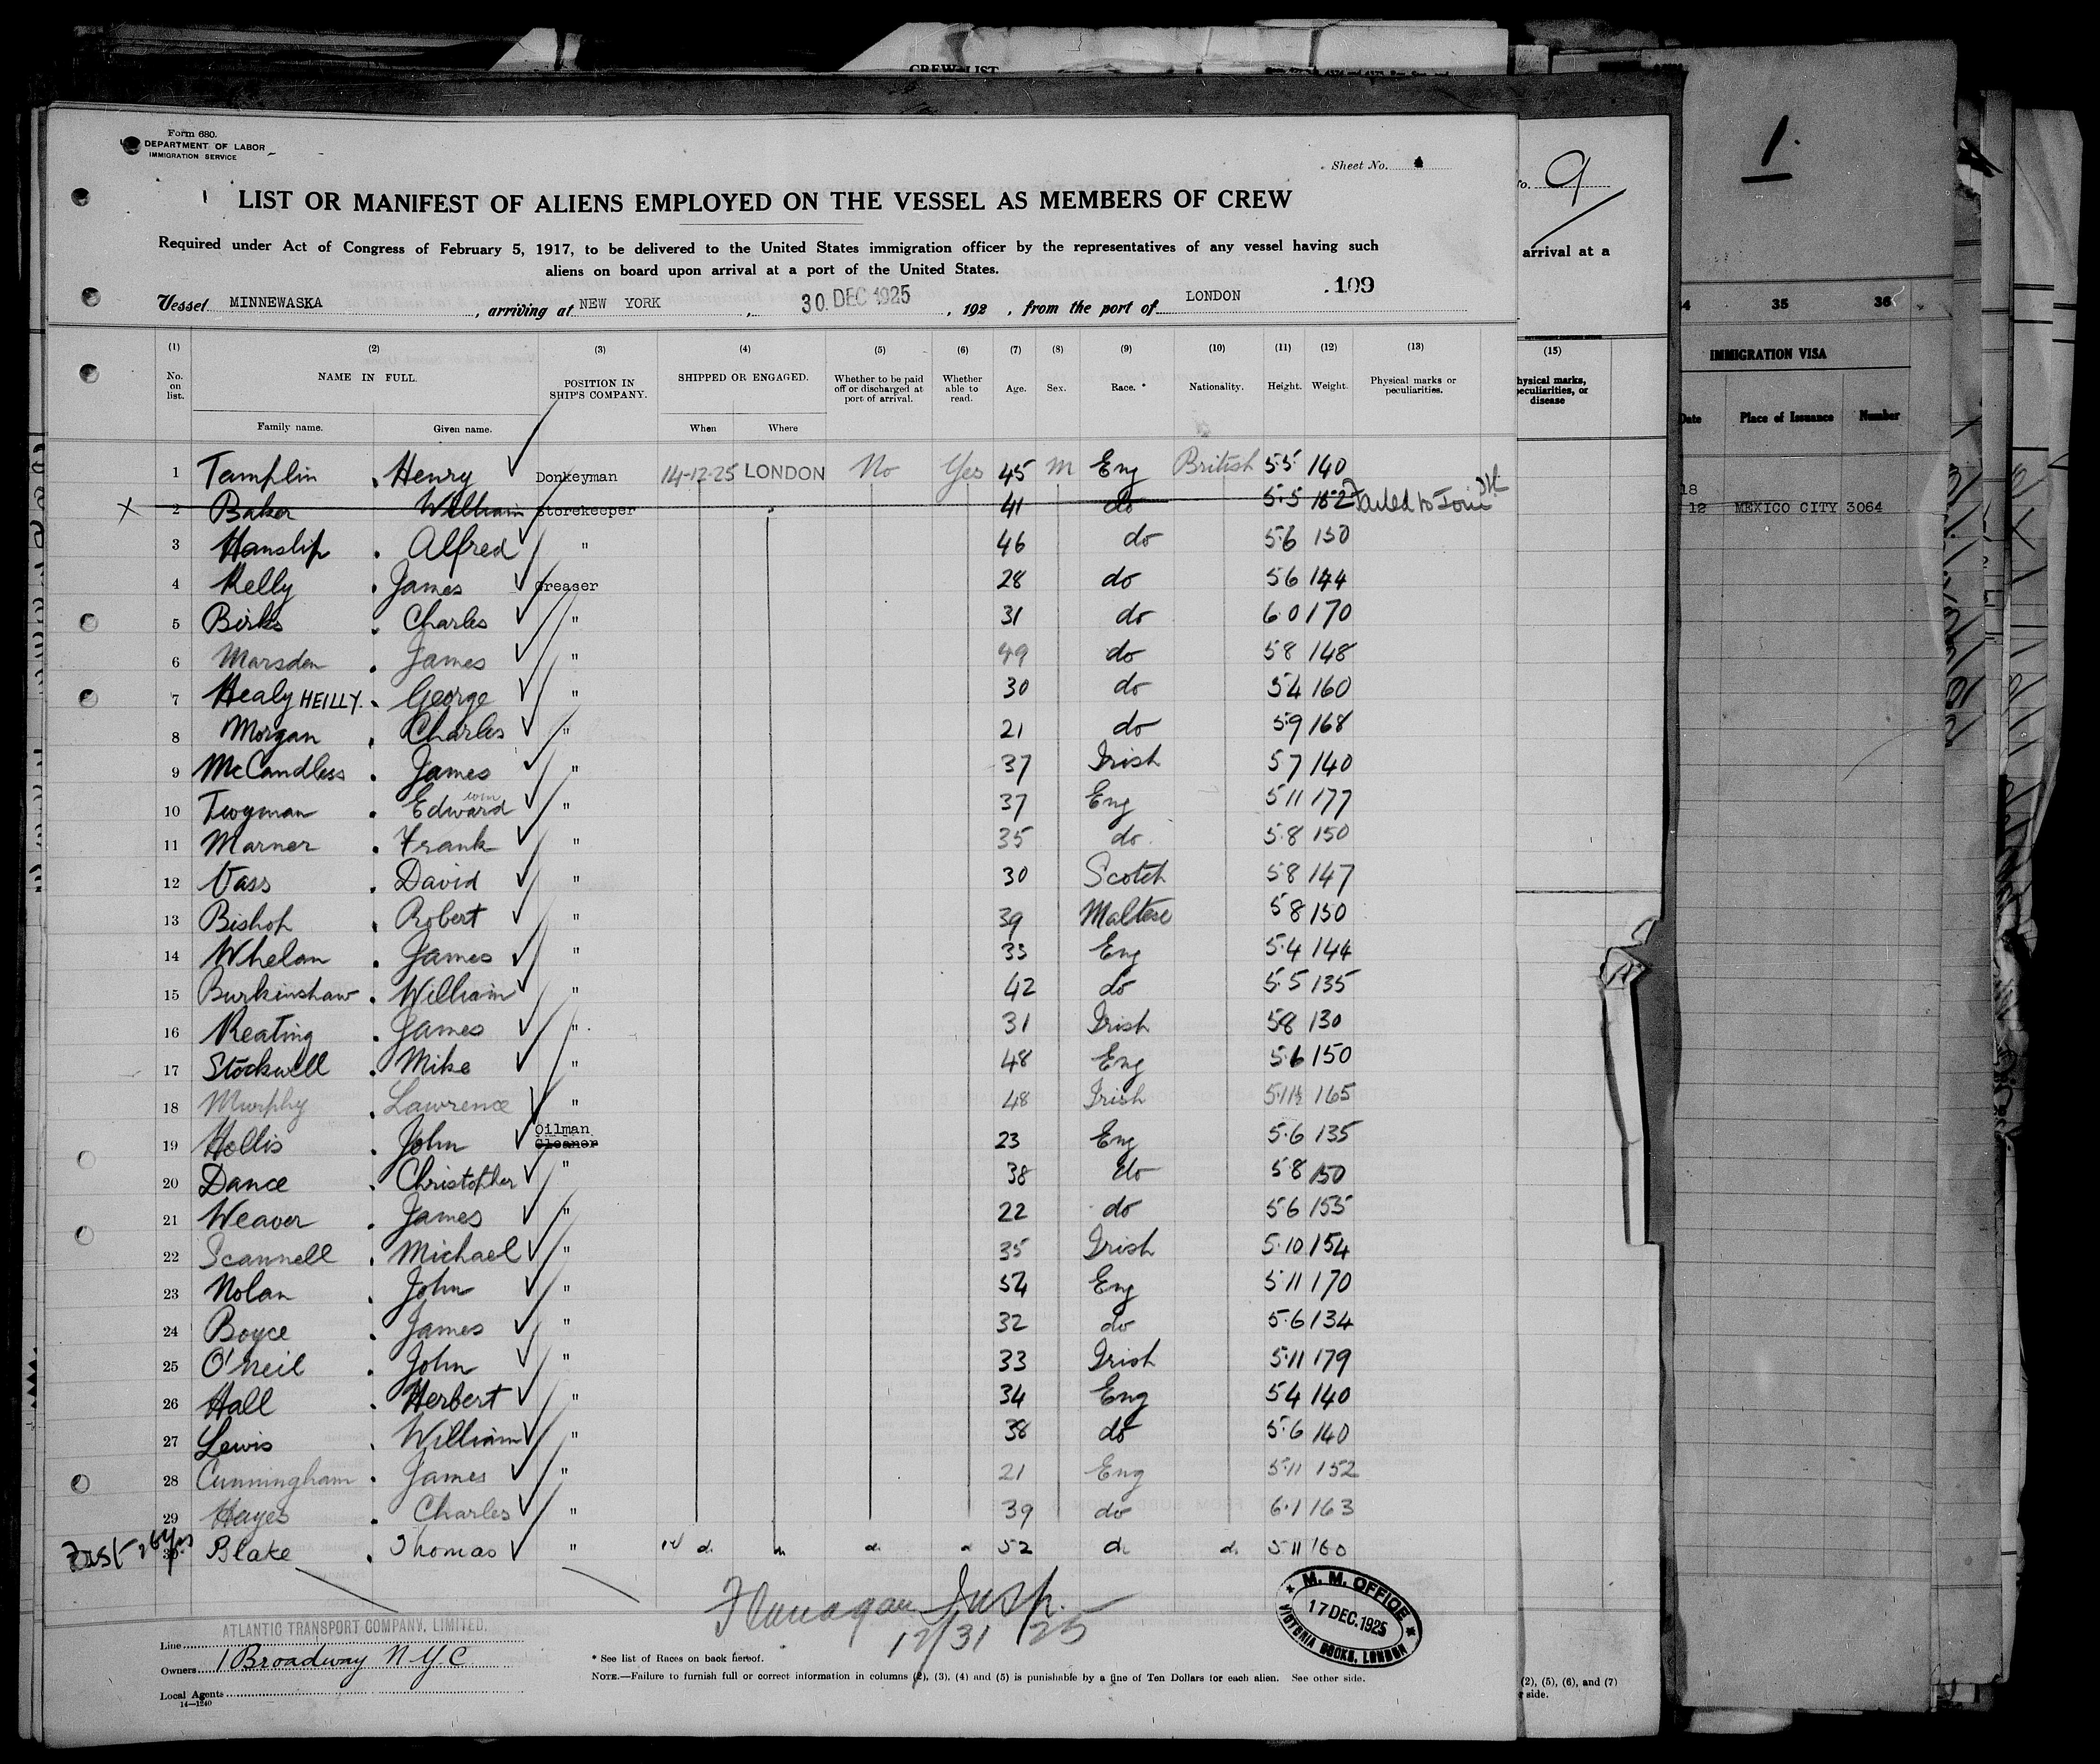 CREW LIST
Form 680.
DEPARTMENT OF LABOR
IMMIGRATION SERVICE
Sheet No. 4
LIST OR MANIFEST OF ALIENS EMPLOYED ON THE VESSEL AS MEMBERS OF CREW
Required under Act of Congress of February 5, 1917, to be delivered to the United States immigration officer by the representatives of any vessel having such
aliens on board upon arrival at a port of the United States.
109
Vessel MINNEWASKA, arriving at NEW YORK, 30 DEC 1925, 192 , from the port of LONDON
(1) (2) (3) (4) (5) (6) (7) (8) (9) (10) (11) (12) (13)
No. on list. NAME IN FULL. POSITION IN SHIP'S COMPANY. SHIPPED OR ENGAGED. Whether to be paid off or discharged at port of arrival. Whether able to read. Age. Sex. Race.* Nationality. Height. Weight. Physical marks or peculiarities.
Family name. Given name. When Where
1 Tamplin Henry Donkeyman 14-12-25 LONDON No Yes 45 M Eng British 5.5 140
2 Baker William Storekeeper 41 do 5.5 152 Failed to Join
3 Hanslip Alfred " 46 do 5.6 150
4 Kelly James Greaser 28 do 5.6 144
5 Birks Charles " 31 do 6.0 170
6 Marsden James " 49 do 5.8 148
7 Healy HEILLY. George " 30 do 5.4 160
8 Morgan Charles " 21 do 5.9 168
9 McCandless James " 37 Irish 5.7 140
10 Twyman Edward wm " 37 Eng 5.11 177
11 Marner Frank " 35 do. 5.8 150
12 Vass David " 30 Scotch 5.8 147
13 Bishop Robert " 39 Maltese 5.8 150
14 Whelan James " 33 Eng 5.4 144
15 Burkinshaw William " 42 do 5.5 135
16 Keating James " 31 Irish 5.8 130
17 Stockwell Mike " 48 Eng 5.6 150
18 Murphy Lawrence " 48 Irish 5.11½ 165
19 Hollis John Oilman Cleaner 23 Eng 5.6 135
20 Dance Christopher " 38 do 5.8 150
21 Weaver James " 22 do 5.6 155
22 Scannell Michael " 35 Irish 5.10 154
23 Nolan John " 54 Eng 5.11 170
24 Boyce James " 32 do 5.6 134
25 O'Neil John " 33 Irish 5.11 179
26 Hall Herbert " 34 Eng 5.4 140
27 Lewis William " 38 do 5.6 140
28 Cunningham James " 21 Eng 5.11 152
29 Hayes Charles " 39 do 6.1 163
30 Blake Thomas " 52 5.11 160
Flanagan Insp.
12/31/25
M. M. OFFICE
17 DEC. 1925
VICTORIA DOCKS, LONDON
Line ATLANTIC TRANSPORT COMPANY, LIMITED.
Owners 1 Broadway N.Y.C
Local Agents
14—1240
* See list of Races on back hereof.
NOTE.—Failure to furnish full or correct information in columns (2), (3), (4) and (5) is punishable by a fine of Ten Dollars for each alien. See other side.
9
arrival at a
(15)
hysical marks,
peculiarities, or
disease
(2), (5), (6), and (7)
side.
1.
35 36
IMMIGRATION VISA
Date Place of Issuance Number
18
12 MEXICO CITY 3064